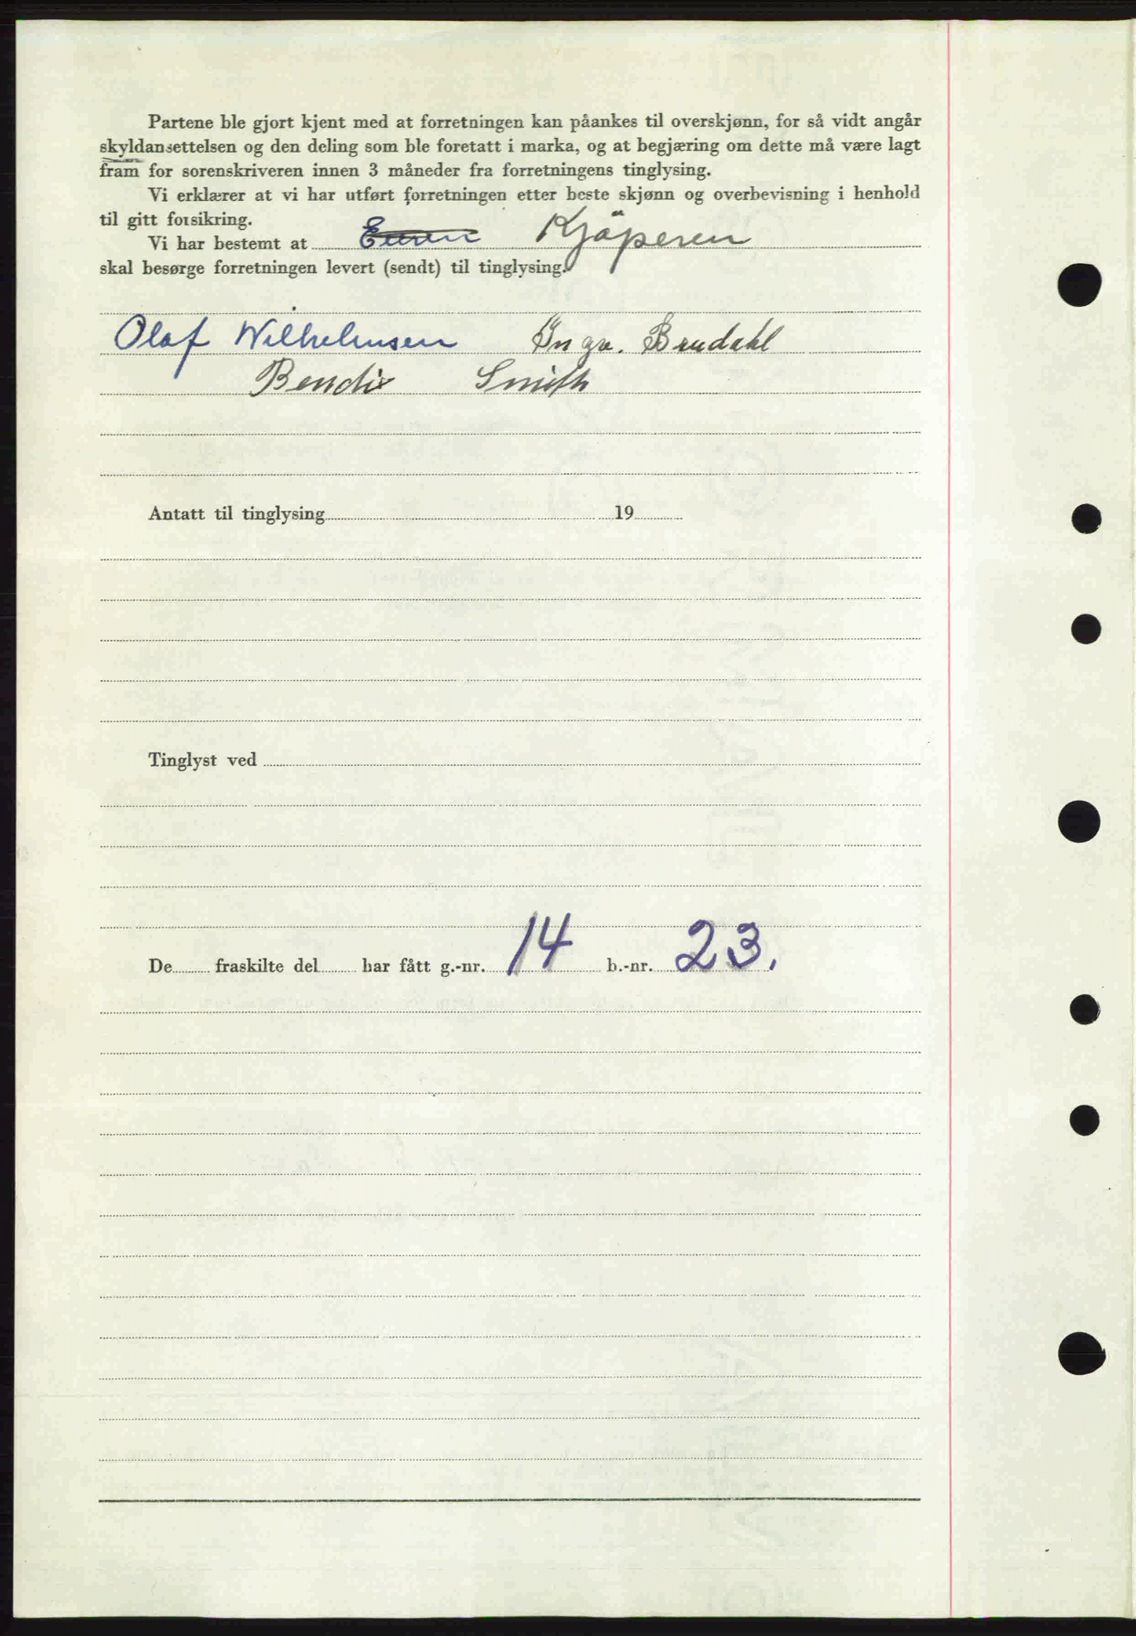 Partene ble gjort kjent med at forretningen kan påankes til overskjønn, for så vidt angår
skyldansettelsen og den deling som ble foretatt i marka, og at begjæring om dette må være lagt
fram for sorenskriveren innen 3 måneder fra forretningens tinglysing.
Vi erklærer at vi har utført forretningen etter beste skjønn og overbevisning i henhold
til gitt forsikring.
Vi har bestemt at Kjöperen
skal besørge forretningen levert (sendt) til tinglysing.
Olaf Wilhelmsen Ingv. Brudahl
Bendix Smith
Antatt til tinglysing 19
Tinglyst ved
De fraskilte del har fått g.-nr. 14 b.-nr. 23.